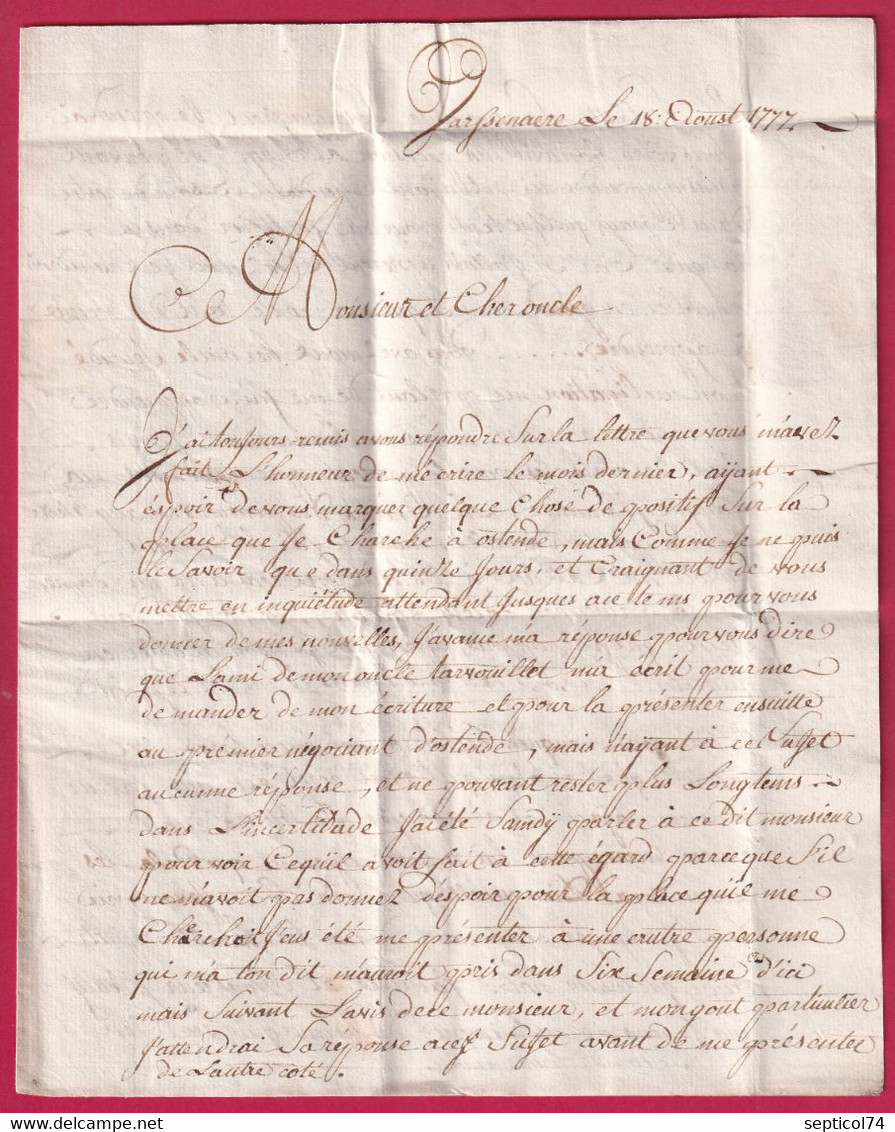 Varssenaere Le 18: Aoust 1777
Monsieur et Cher oncle
J'ai toujours remis avous répondre Sur la lettre que vous m'avez
fait L'honneur de mécrire le mois dernier, aÿant
éspoir de vous marquer quelque Chose de positif Sur la
place que Je Charche à ostende, mais Comme Je ne puis
le Savoir que dans quinze Jours, et Craignant de vous
mettre en inquiétude attendant Jusques a ce tems pour vous
donner de mes nouvelles, J'avance ma réponse pour vous dire
que L'ami de mon oncle tarvouillet m'a écrit pour me
demander de mon écriture et pour la présenter ensuitte
au premier négociant d'ostende, mais n'aÿant à cet Sujet
aucunne réponse, et ne pouvant rester plus Longtems
dans L'incertitude J'ai été Samdÿ parler à ce dit monsieur
pour voir Cequ'il avoit fait à cette égard parce que S'il
ne m'avoit pas donnez d'éspoir pour la place qu'il me
Cherchoit J'eus été me présenter à une autre personne
qui m'a ton dit m'auroit pris dans Six Semaine d'ici
mais Suivant L'avis de ce monsieur, et mon gout particulier
J'attendrai Sa réponse a ce Sujet avant de me présenter
de L'autre coté.
septicol74